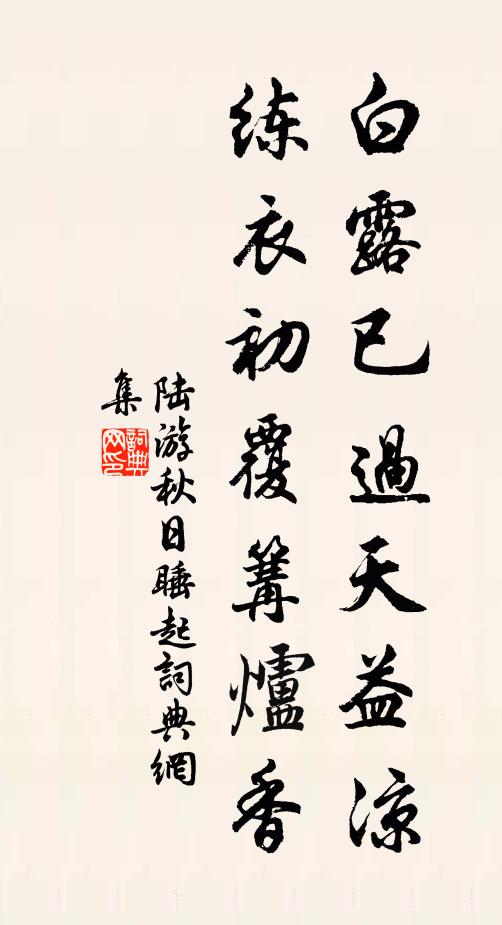 白露已過天益涼
练衣初覆篝爐香
陆游秋日睡起詞典網
集
詞典网印